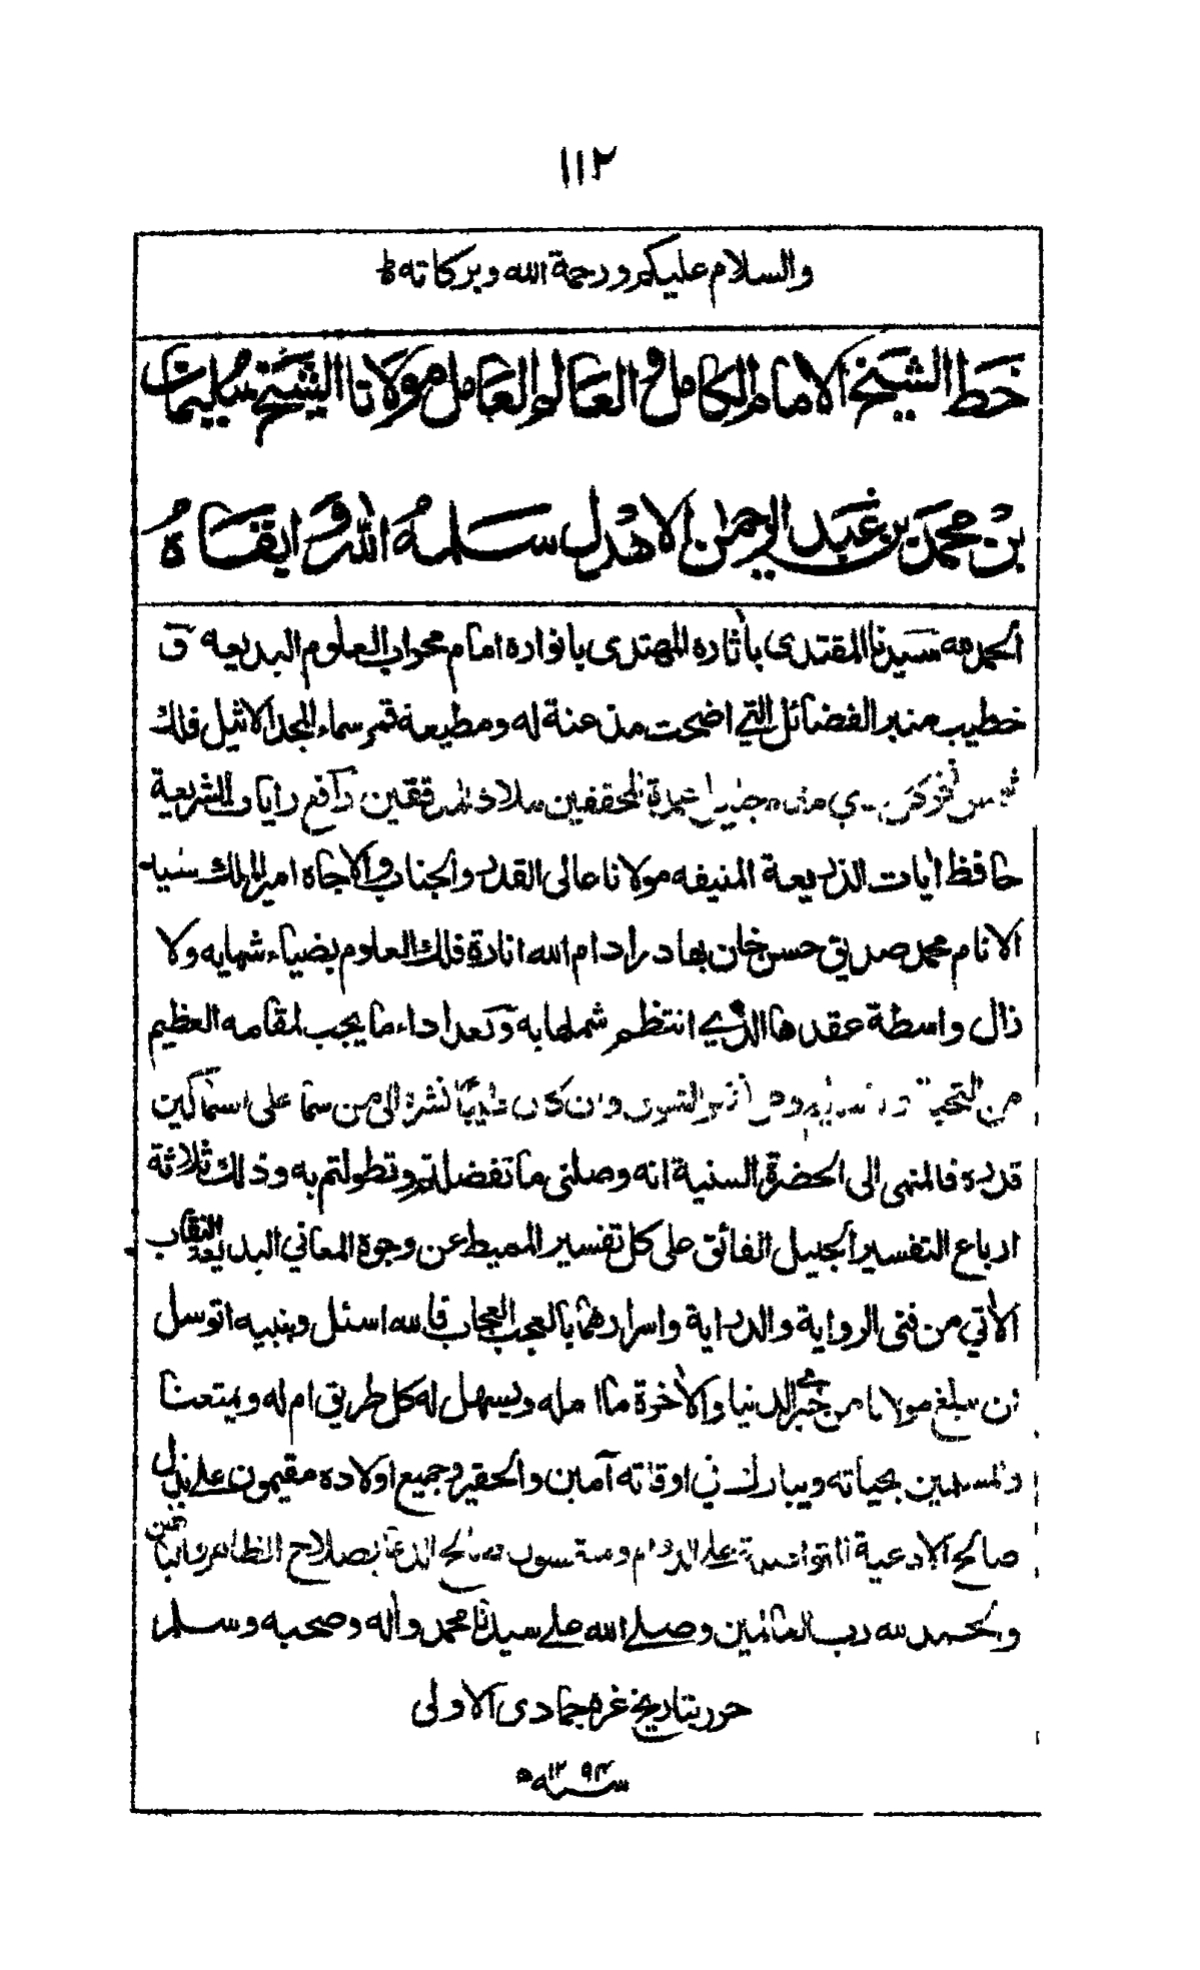 ١١٢
والسلام عليكم ورحمة الله وبركاته ط
خط الشيخ الامام الكامل والعالم العامل مولانا الشيخ سليمان
بن محمد بن عبد الرحمن الاهدل سلمه الله وابقاه
سيدنا المقتدى بأثاره المهتدى بانواره امام محراب العلوم البديعه و
خطيب منبر الفضائل التي اضحت مذعنة له ومطيعة قمر سماء المجد الاثيل فلك
شمس عمدة المحققين ملاذ المدققين رافع رايات الشريعة
حافظ أيات الذريعة المنيفه مولانا عالى القدر والجناب والاجاه امير الملك سنيه
الانام محمد صديق حسن خان بهادر ادام الله انارة فلك العلوم بضياء شهابه ولا
زال واسطة عقدها الذي انتظم شملها به وبعد اداء ما يجب لمقامه العظيم
من وان كان طيبا نشره الى من سما على السماكين
قدره فالمنهى الى الحضرة السنية انه وصلنى ما تفضلتم وتطولتم به وذلك ثلاثة
ارباع التفسير الجليل الفائق على كل تفسير المميط عن وجوه المعاني البديعة النقاب
الأتي من فنى الرواية والدراية واسرارهما بالعجب العجاب فالله اسئل وبنبيه اتوسل
ان يبلغ مولانا من خيري الدنيا والأخرة ما امله ويسهل له كل طريق ام له ويمتعنا
والمسلمين بحياته ويبارك في اوقاته آمين والحقير وجميع اولاده مقيمون على بذل
صالح الادعية على الدوام صالح الدعا بصلاح الظاهر والباطن
والحمد لله رب العالمين وصلى الله على سيدنا محمد وأله وصحبه وسلم
حرر بتاريخ غره جمادى الاولى
سنه ١٢٩٣ه